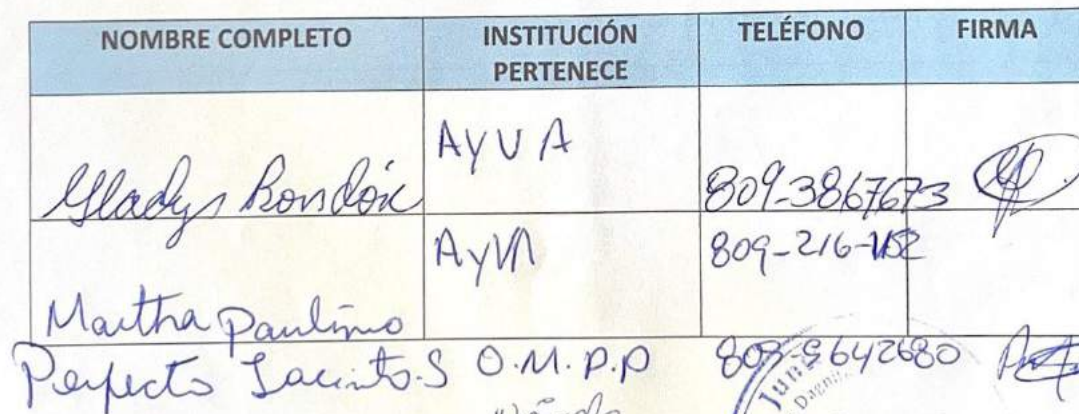 NOMBRE COMPLETO INSTITUCIÓN PERTENECE TELÉFONO FIRMA
Gladys Rondón AYUA 809-3867673
Martha Paulino AyUA 809-216-
Perfecto Jacinto.S O.M.P.P